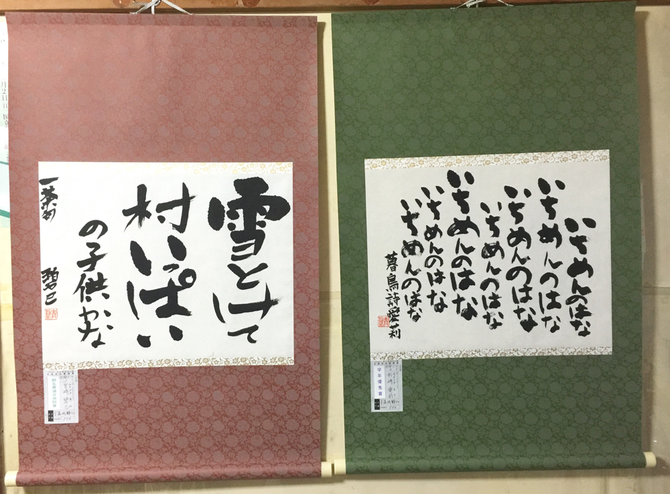 雪とけて
村いっぱい
の子供かな
一茶句
碧巳
いちめんのはな
いちめんのはな
いちめんのはな
いちめんのはな
いちめんのはな
いちめんのはな
いちめんのはな
いちめんのはな
暮鳥詩愛莉